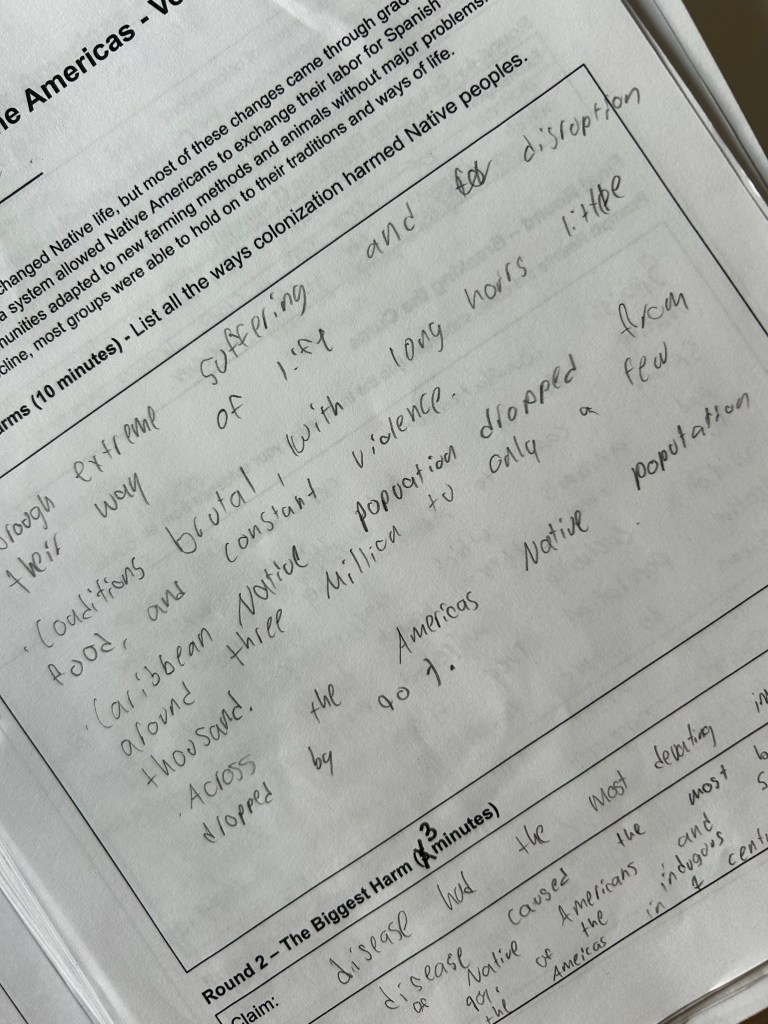 he Americas -
changed Native life, but most of these changes came through grad
a system allowed Native Americans to exchange their labor for Spanish
munities adapted to new farming methods and animals without major problems.
cline, most groups were able to hold on to their traditions and ways of life.
rms (10 minutes) - List all the ways colonization harmed Native peoples.
rough extreme suffering and disroption
their way of life
. Conditions brutal, with long hours little
food, and constant violence.
. Caribbean Native popuation dropped from
around three Million to only a few
thousand.
. Across the Americas Native population
dropped by 90%.
Round 2 – The Biggest Harm (3 minutes)
Claim: disease had the most devating in
disease caused the most b
of Native Americans and S
90% of the indugous
the Ameicas in 1 cent